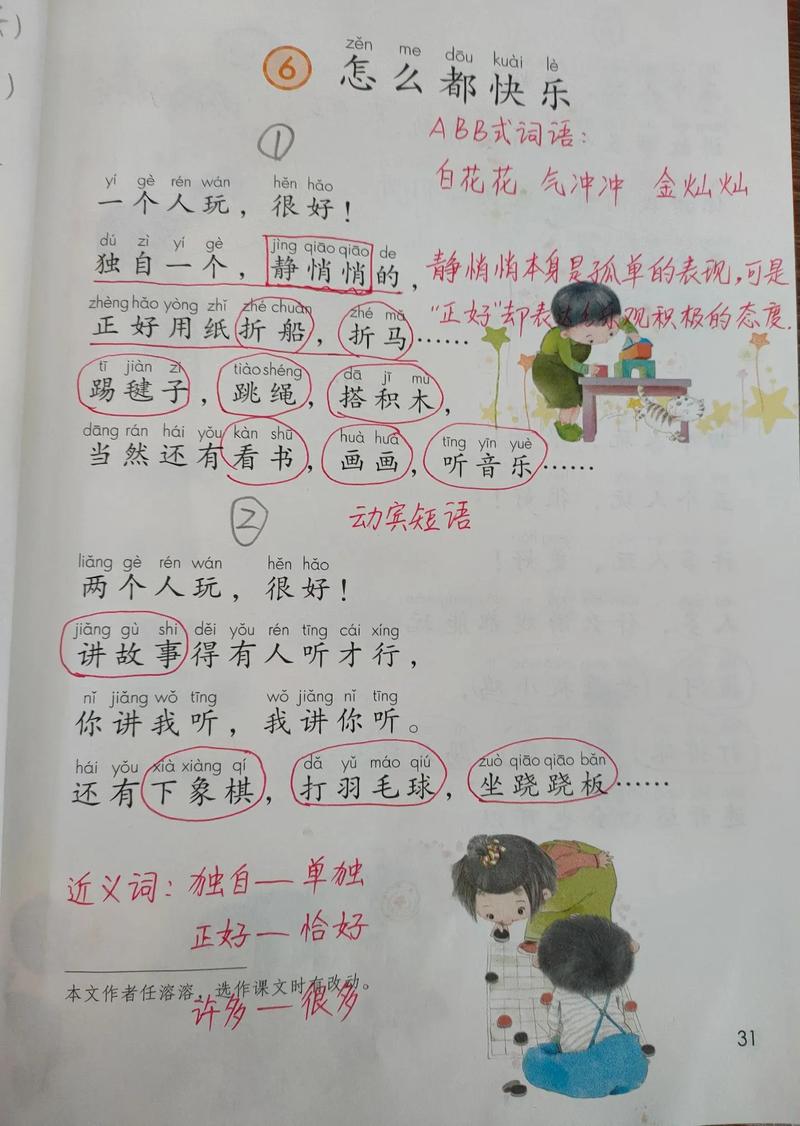 zěn me dōu kuài lè
6 怎么都快乐
ABB式词语：
①
白花花 气冲冲 金灿灿
yí gè rén wán hěn hǎo
一个人玩，很好！
dú zì yí gè jìng qiāo qiāo de
独自一个，静悄悄的，
静悄悄本身是孤单的表现，可是
zhèng hǎo yòng zhǐ zhé chuán zhé mǎ
正好用纸折船，折马……
“正好”却表达乐观积极的态度.
tī jiàn zi tiào shéng dā jī mù
踢毽子，跳绳，搭积木，
dāng rán hái yǒu kàn shū huà huà tīng yīn yuè
当然还有看书，画画，听音乐……
②
动宾短语
liǎng gè rén wán hěn hǎo
两个人玩，很好！
jiǎng gù shi děi yǒu rén tīng cái xíng
讲故事得有人听才行，
nǐ jiǎng wǒ tīng wǒ jiǎng nǐ tīng
你讲我听，我讲你听。
hái yǒu xià xiàng qí dǎ yǔ máo qiú zuò qiāo qiāo bǎn
还有下象棋，打羽毛球，坐跷跷板……
近义词：独自—单独
正好—恰好
本文作者任溶溶，选作课文时有改动。
许多—很多
31